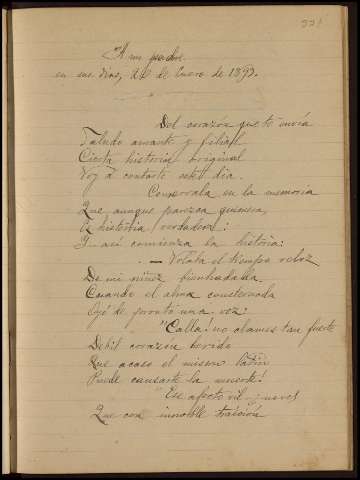 A mi padre
en sus días, 20 de Enero de 1893.
Del corazón que te envía
Saludo amante y filial
Cierta historia original
Voy á contarte este día.
Consérvala en la memoria
Que aunque parezca quimera,
Es historia verdadera:
Y así comienza la historia:
— Volaba el tiempo veloz
De mi niñez bienhadada
Cuando el alma consternada
Oyó de pronto una voz:
"Calla! no clames tan fuerte
Débil corazón herido
Que acaso el mismo latido
Puede causarte la muerte!
"Ese afecto vil
Que con innoble traición